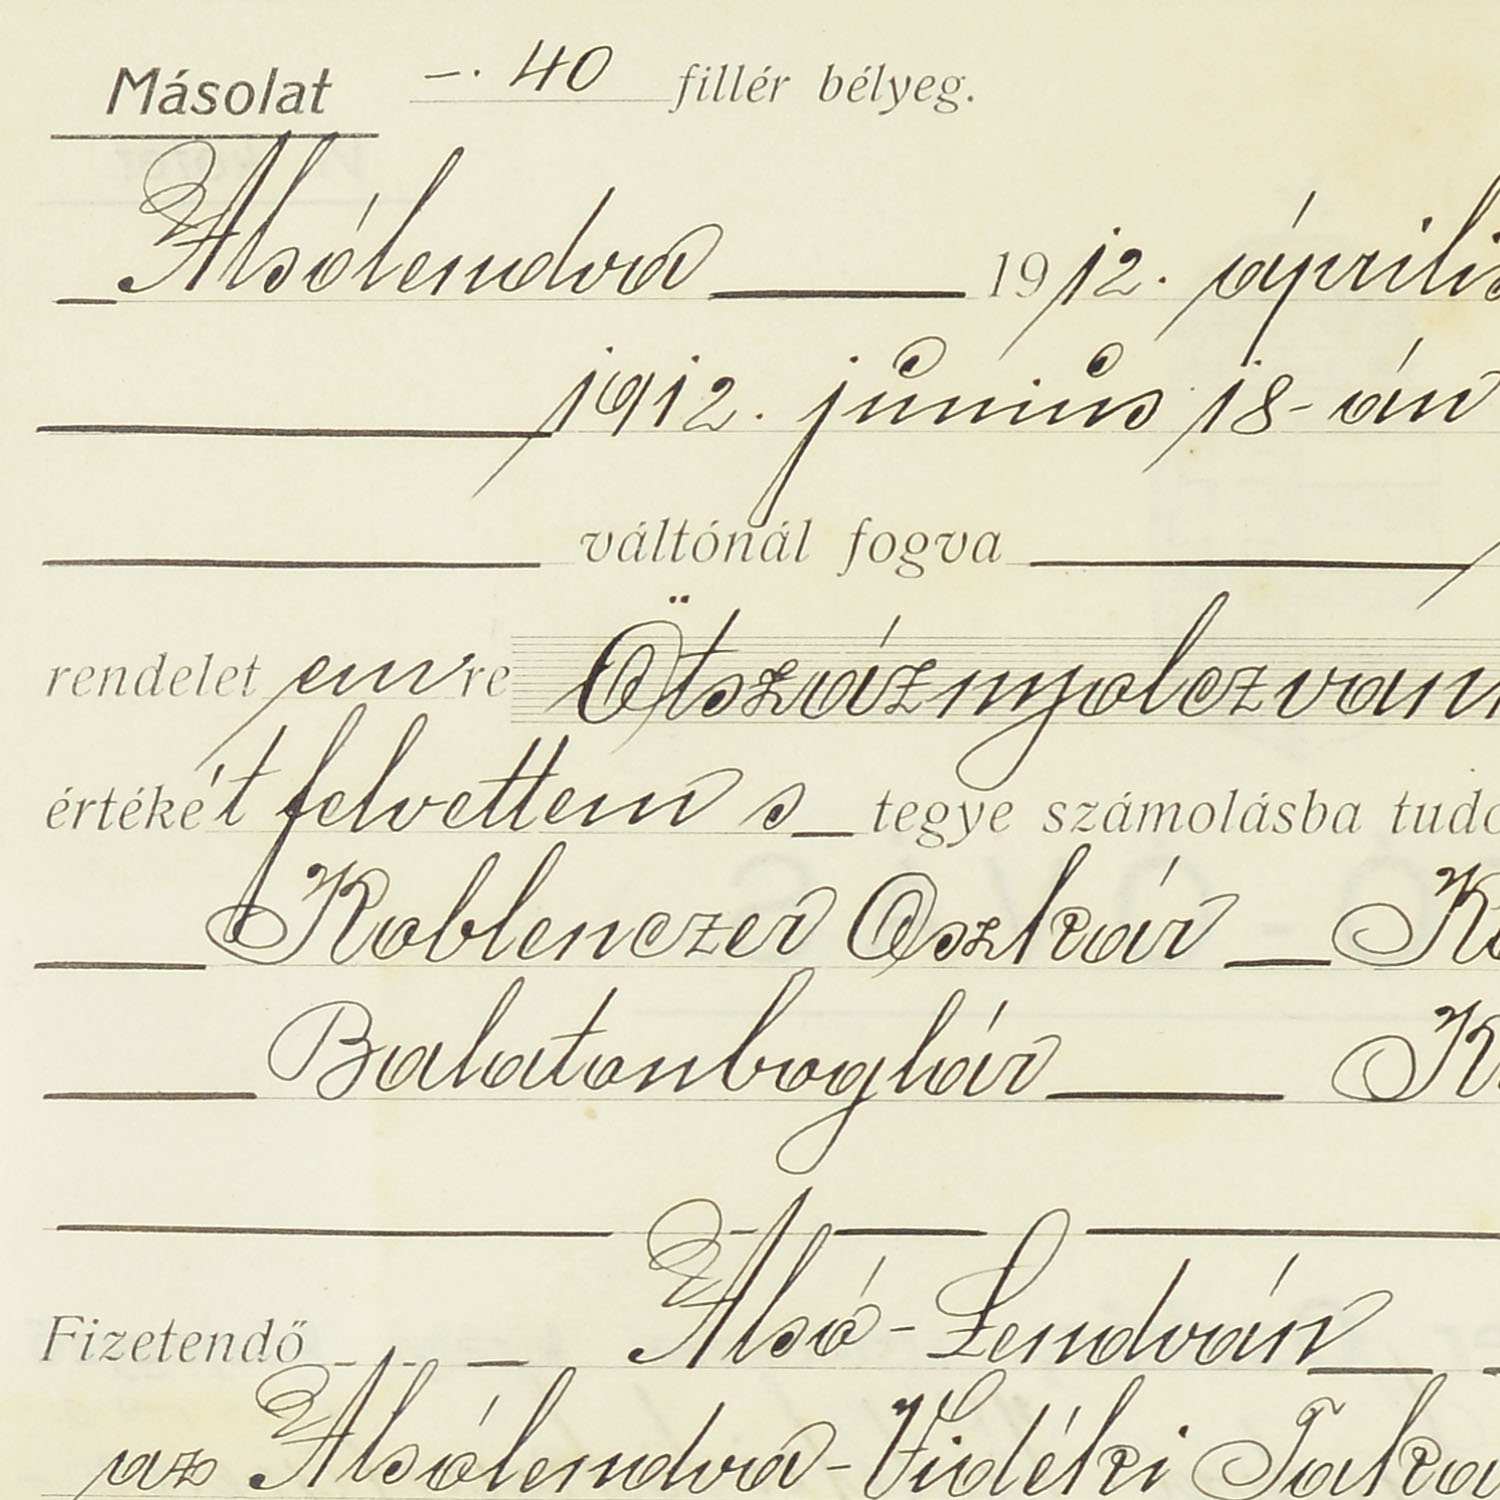 Másolat —. 40 fillér bélyeg.
Alsólendva 1912. április
1912. június 18-án
váltónál fogva
rendelet emre Ötszáznyolczvan
értékét felvettem s tegye számolásba
Koblenczer Oszkár
Balatonboglár
Fizetendő Alsó-Lendván
az Alsólendva-Vidéki